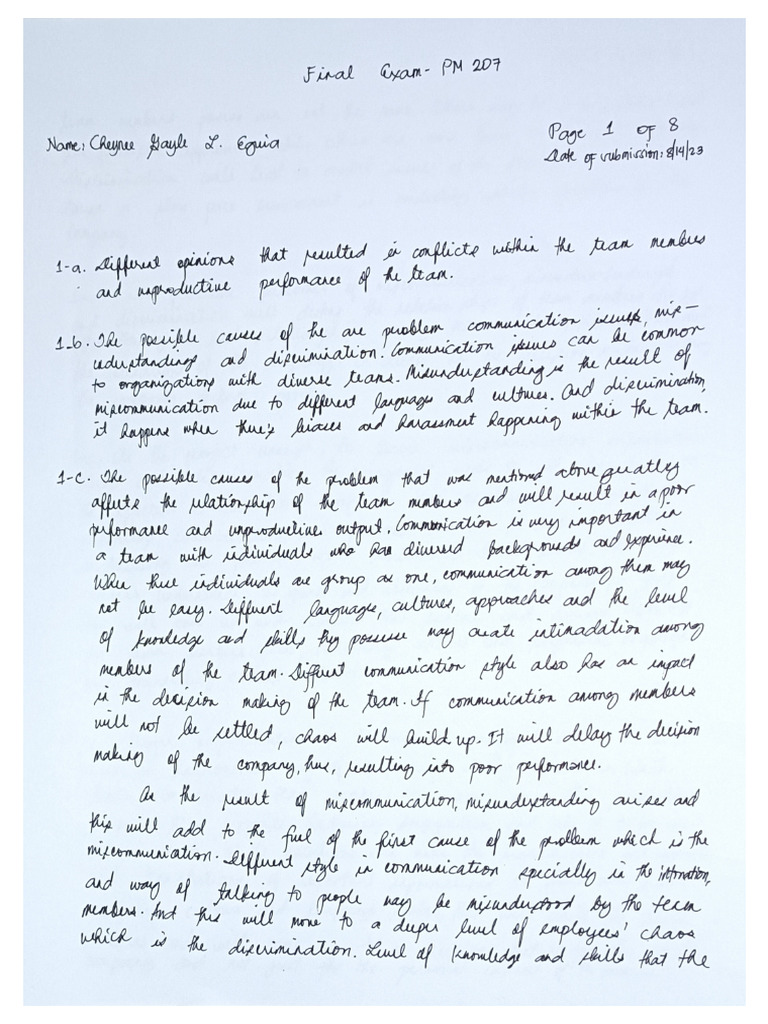 Final Exam - PM 207
Name: Cheynee Gayle L. Eguia
Page 1 of 8
Date of submission: 8/14/23
1-a. Different opinions that resulted in conflicts within the team members
and unproductive performance of the team.
1-b. The possible causes of the are problem communication issues, mis-
understandings and discrimination. Communication issues can be common
to organizations with diverse teams. Misunderstanding is the result of
miscommunication due to different languages and cultures. And discrimination,
it happens when there's biases and harassment happening within the team.
1-c. The possible causes of the problem that was mentioned above greatly
affects the relationship of the team members and will result in a poor
performance and unproductive output. Communication is very important in
a team with individuals who has diversed backgrounds and experience.
When these individuals are group as one, communication among them may
not be easy. Different languages, cultures, approaches and the level
of knowledge and skills they possess may create intimadation among
members of the team. Different communication style also has an impact
in the decision making of the team. If communication among members
will not be settled, chaos will build up. It will delay the decision
making of the company, thus, resulting into poor performance.
As the result of miscommunication, misunderstanding arises and
this will add to the fuel of the first cause of the problem which is the
miscommunication. Different style in communication specially in the intonation,
and way of talking to people may be misunderstood by the team
members. And this will move to a deeper level of employees' chaos
which is the discrimination. Level of knowledge and skills that the